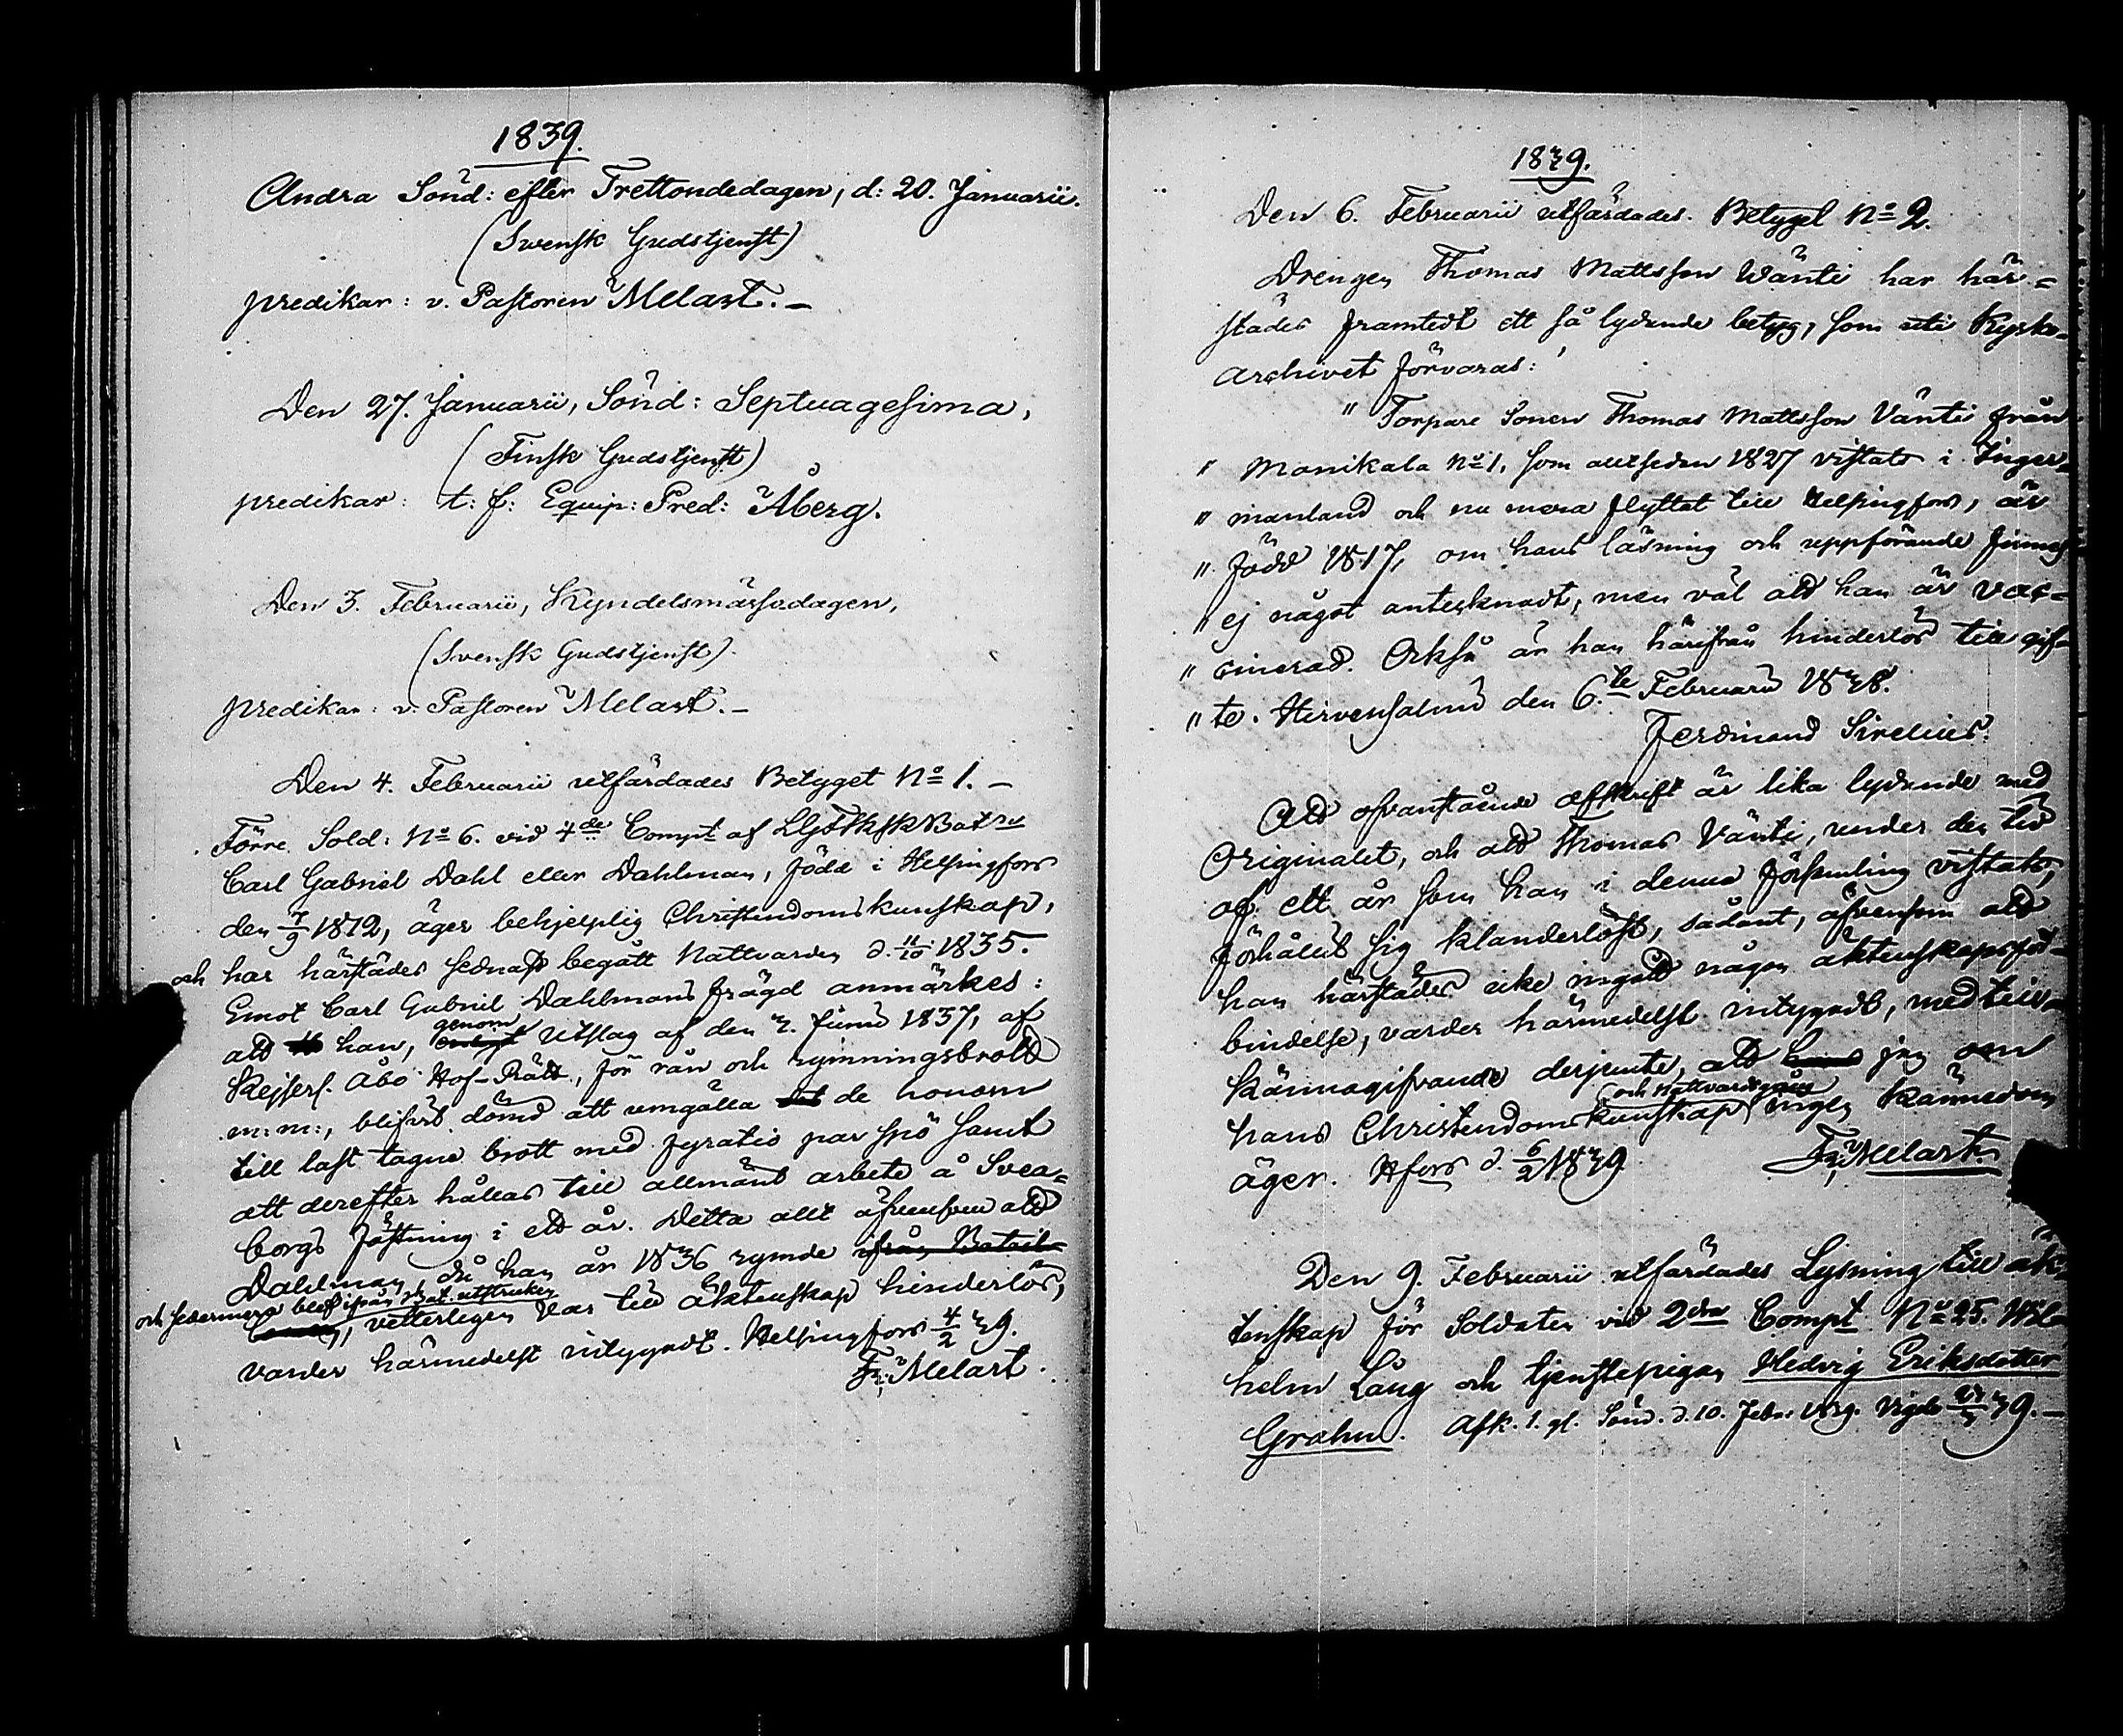 1839.
Andra Sönd: efter Trettondedagen, d: 20. Januarii.
(Swensk Gudstjenst)
predikar: v. Pastoren Melart. –
Den 27. Januarii, Sönd: Septuagesima,
(Finsk Gudstjenst)
predikar: t: f: Equip: Pred: Åberg.
Den 3. Februarii, Kyndelsmässodagen,
(Svensk Gudstjenst)
predikar: v. Pastoren Melart. –
Den 4. Februarii utfärdades Betyget No 1. –
Förre Sold: No 6. vid 4de Compt af
Carl Gabriel Dahl eller Dahlman, född i Helsingfors
den 7/9 1812, äger behjelplig Christendomskunskap,
och har härstädes sednast begått Nattvarden d. 11/10 1835.
Emot Carl Gabriel Dahlmans frägd anmärkes:
att han, genom Utslag af den 3. Junii 1837, af
Kejserl. Åbo Hof-Rätt, för rån och rymningsbrott
m: m:, blifvit dömd att umgälla de honom
till last tagne brott med gatu par spö samt
att derefter hållas till allmänt arbete å Svea-
borgs fästning i ett år. Detta allt äfvensom att
Dahlman, då han år 1836 rymde ifrån Batail-
och sedermera blef ifrån Bat. utstruken
, vetterligen var till äktenskap hinderlös,
varder härmedelst intygadt. Helsingfors 4/2 39.
Fr: Melart.
1839.
Den 6. Februarii utfärdades Betyget No 2.
Drengen Thomas Mattsson Wänti har här-
städes framtedt ett så lydande betyg, som uti Kyrko-
archivet förvaras:
" Torpare Sonen Thomas Mattsson Vänti från
" Monikala No 1, som alltsedan 1827 vistats i Inger-
" manland och nu mera flyttat till Helsingfors, är
" född 1817, om hans läsning och uppförande finnes
" ej något antecknadt, men väl att han är vac-
" cinerad. Också är han härifrån hinderlös till gif-
" te. Hirvensalmi den 6te Februarii 1838.
Ferdinand Sirelius.
Att ofvanstående afskrift är lika lydande med
Originalet, och att Thomas Vänti, under den tid
af ett år som han i denna församling vistats,
förhållit sig klanderlöst, sådant, äfvensom att
han härstädes icke ingått någon äktenskapsför-
bindelse, varder härmedelst intygadt, med till-
kännagifvande derjemte, att jag om
hans Christendomskunskap och Nattvardsgång ingen kännedom
äger. Hfors d. 6/2 1839 Fr: Melart.
Den 9. Februarii utfärdades Lysning till äk-
tenskap för Soldaten vid 2dra Compt No 25. Wil-
helm Lång och tjenstepigan Hedvig Eriksdotter
Grahn. Afk. 1. g. Sönd. d. 10. Febr. 1839. Vigde 39. –